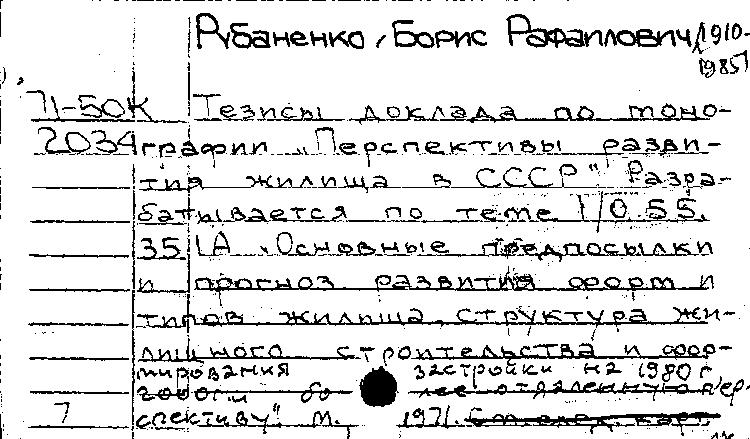 Рубаненко, Борис Рафаилович, 1910-
1985
71-50К Тезисы доклада по моно-
2034 графии „Перспективы разви-
тия жилища в СССР". Разра-
батывается по теме 1/0.55.
351А „Основные предпосылки
и прогноз развития форм и
типов жилища, структура жи-
лищного строительства и фор-
мирования застройки на 1980 г
более отдаленную пер-
7 спективу". М. 1971. См. след. карт.